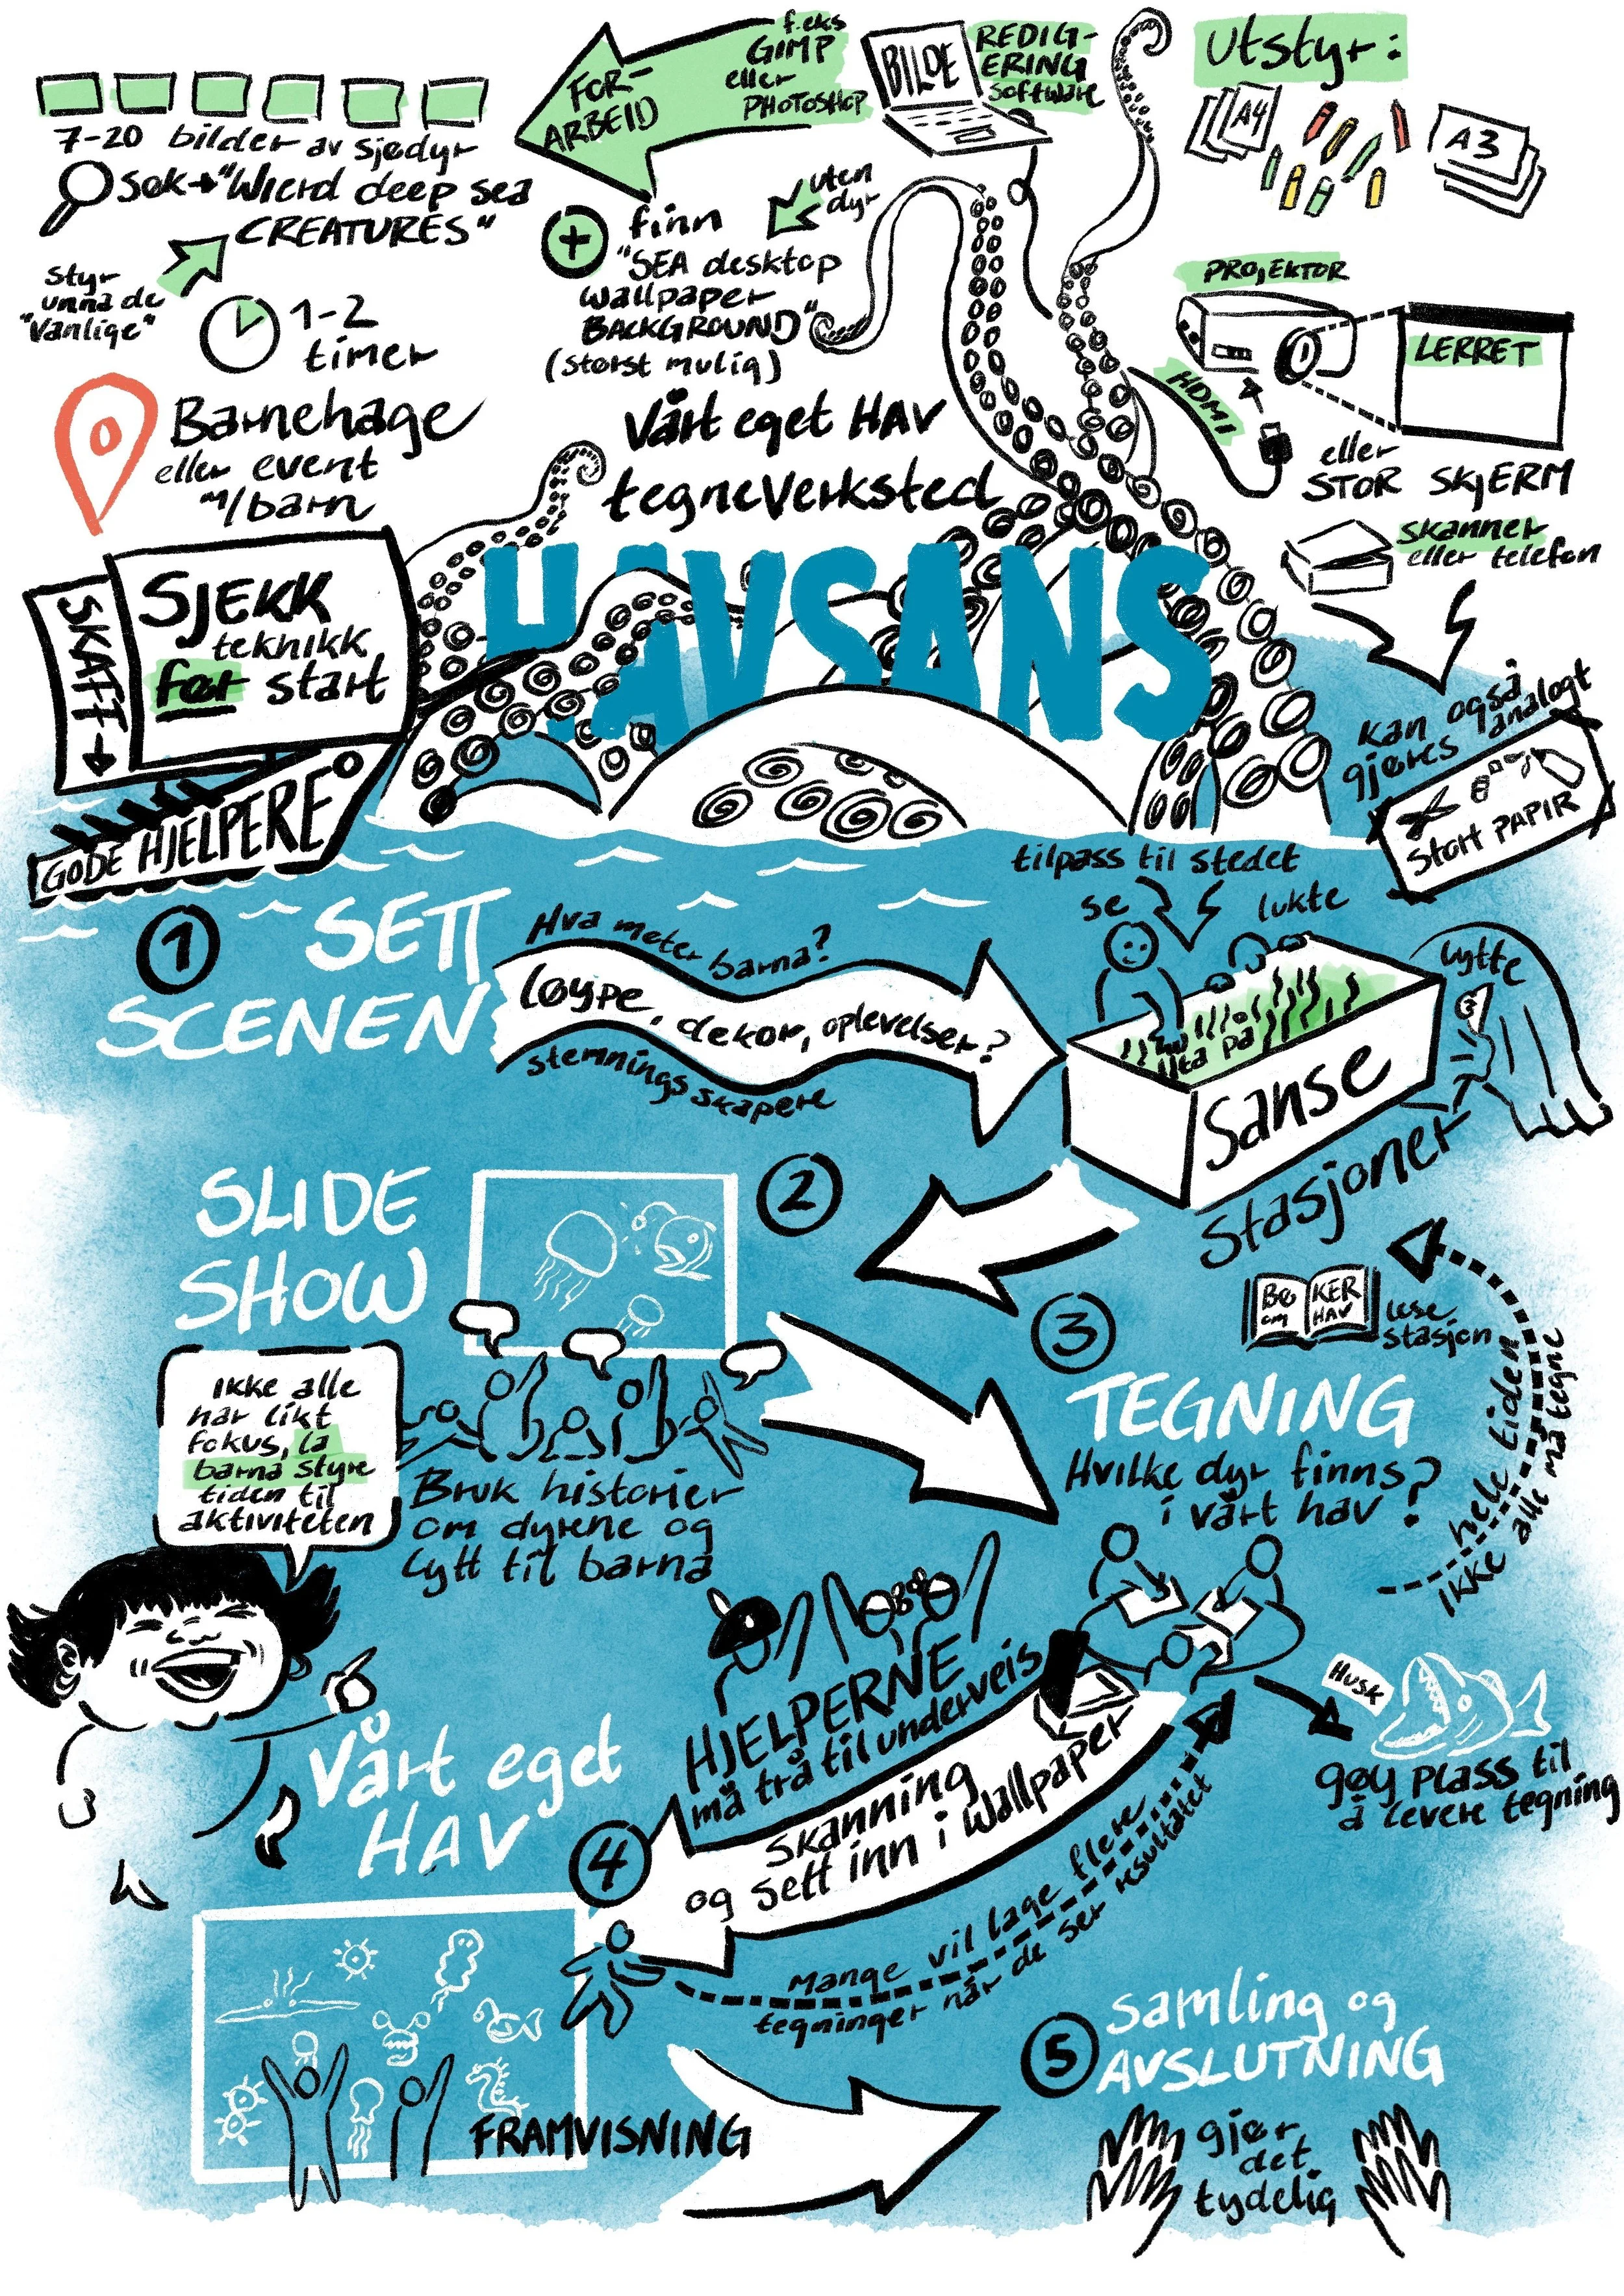 7-20 bilder av sjødyr
søk → "Wierd deep sea
CREATURES"
Styr
unna de
"Vanlige"
1-2
timer
Barnehage
eller event
m/barn
FOR-
ARBEID
f.eks
GIMP
eller
PHOTOSHOP
BILDE
REDIG-
ERING
software
+ finn
"SEA desktop
Wallpaper
BACKGROUND"
(størst mulig)
uten
dyr
utstyr:
A4
A3
PROJEKTOR
LERRET
HDMI
eller
STOR SKJERM
skanner
eller telefon
kan også
gjøres analogt
Stort PAPIR
Vårt eget HAV
tegneverksted
HAVSANS
SKAFF →
SJEKK
teknikk
før start
GODE HJELPERE
1
SETT
SCENEN
Hva møter barna?
Løype, dekor, oplevelser?
stemningsskapere
tilpass til stedet
se
lukte
lytte
ta på
Sanse
Stasjoner
BØ KER
om HAV
lese
stasjon
2
SLIDE
SHOW
ikke alle
har likt
fokus, la
barna styre
tiden til
aktiviteten
Bruk historier
om dyrene og
lytt til barna
3
TEGNING
Hvilke dyr finns?
i vårt hav?
hele tiden
ikke alle må tegne
HJELPERNE
må trå til underveis
Husk
gøy plass til
å levere tegning
Skanning
og sett inn i wallpaper
4
Vårt eget
HAV
Mange vil lage flere
tegninger når de ser resultatet
FRAMVISNING
5
Samling og
AVSLUTNING
gjør
det
tydelig